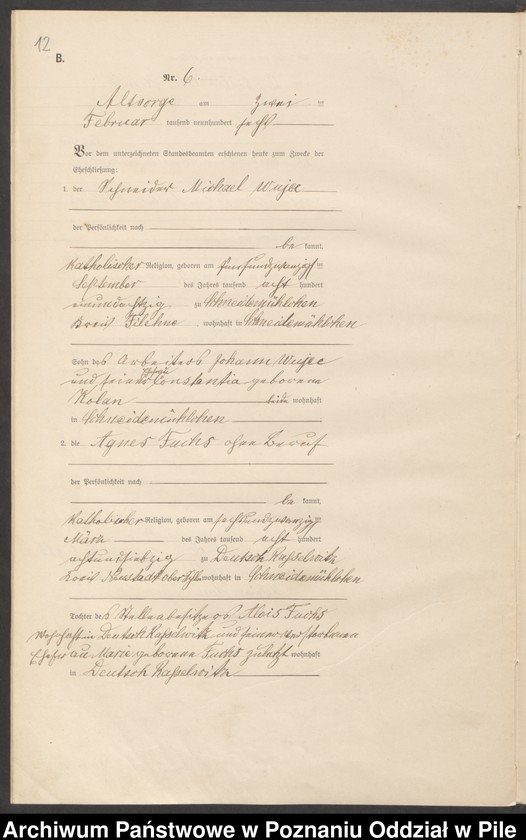 12
B.
Nr. 6.
Altsorge am zwei ten
Februar tausend neunhundert sechs
Vor dem unterzeichneten Standesbeamten erschienen heute zum Zwecke der
Eheschließung:
1. der Schneider Michael Wujec
der Persönlichkeit nach
be kannt,
katholischer Religion, geboren am fünfundzwanzigsten
September des Jahres tausend acht hundert
zu Schneidemühlchen
Kreis Filehne, wohnhaft in Schneidemühlchen
Sohn des Arbeiters Johann Wujec
und seiner Ehefrau Constantia geborene
Kolan beide wohnhaft
in Schneidemühlchen
2. die Agnes Fuchs ohne Beruf
der Persönlichkeit nach
be kannt,
katholischer Religion, geboren am sechsundzwanzigsten
März des Jahres tausend acht hundert
achtundsiebzig zu Deutsch Rasselwitz
Kreis Neustadt oberschl. wohnhaft in Schneidemühlchen
Tochter des Stellenbesitzers Alois Fuchs
wohnhaft in Deutsch Rasselwitz und seiner verstorbenen
Ehefrau Marie geborene Fuchs zuletzt wohnhaft
in Deutsch Rasselwitz
Archiwum Państwowe w Poznaniu Oddział w Pile